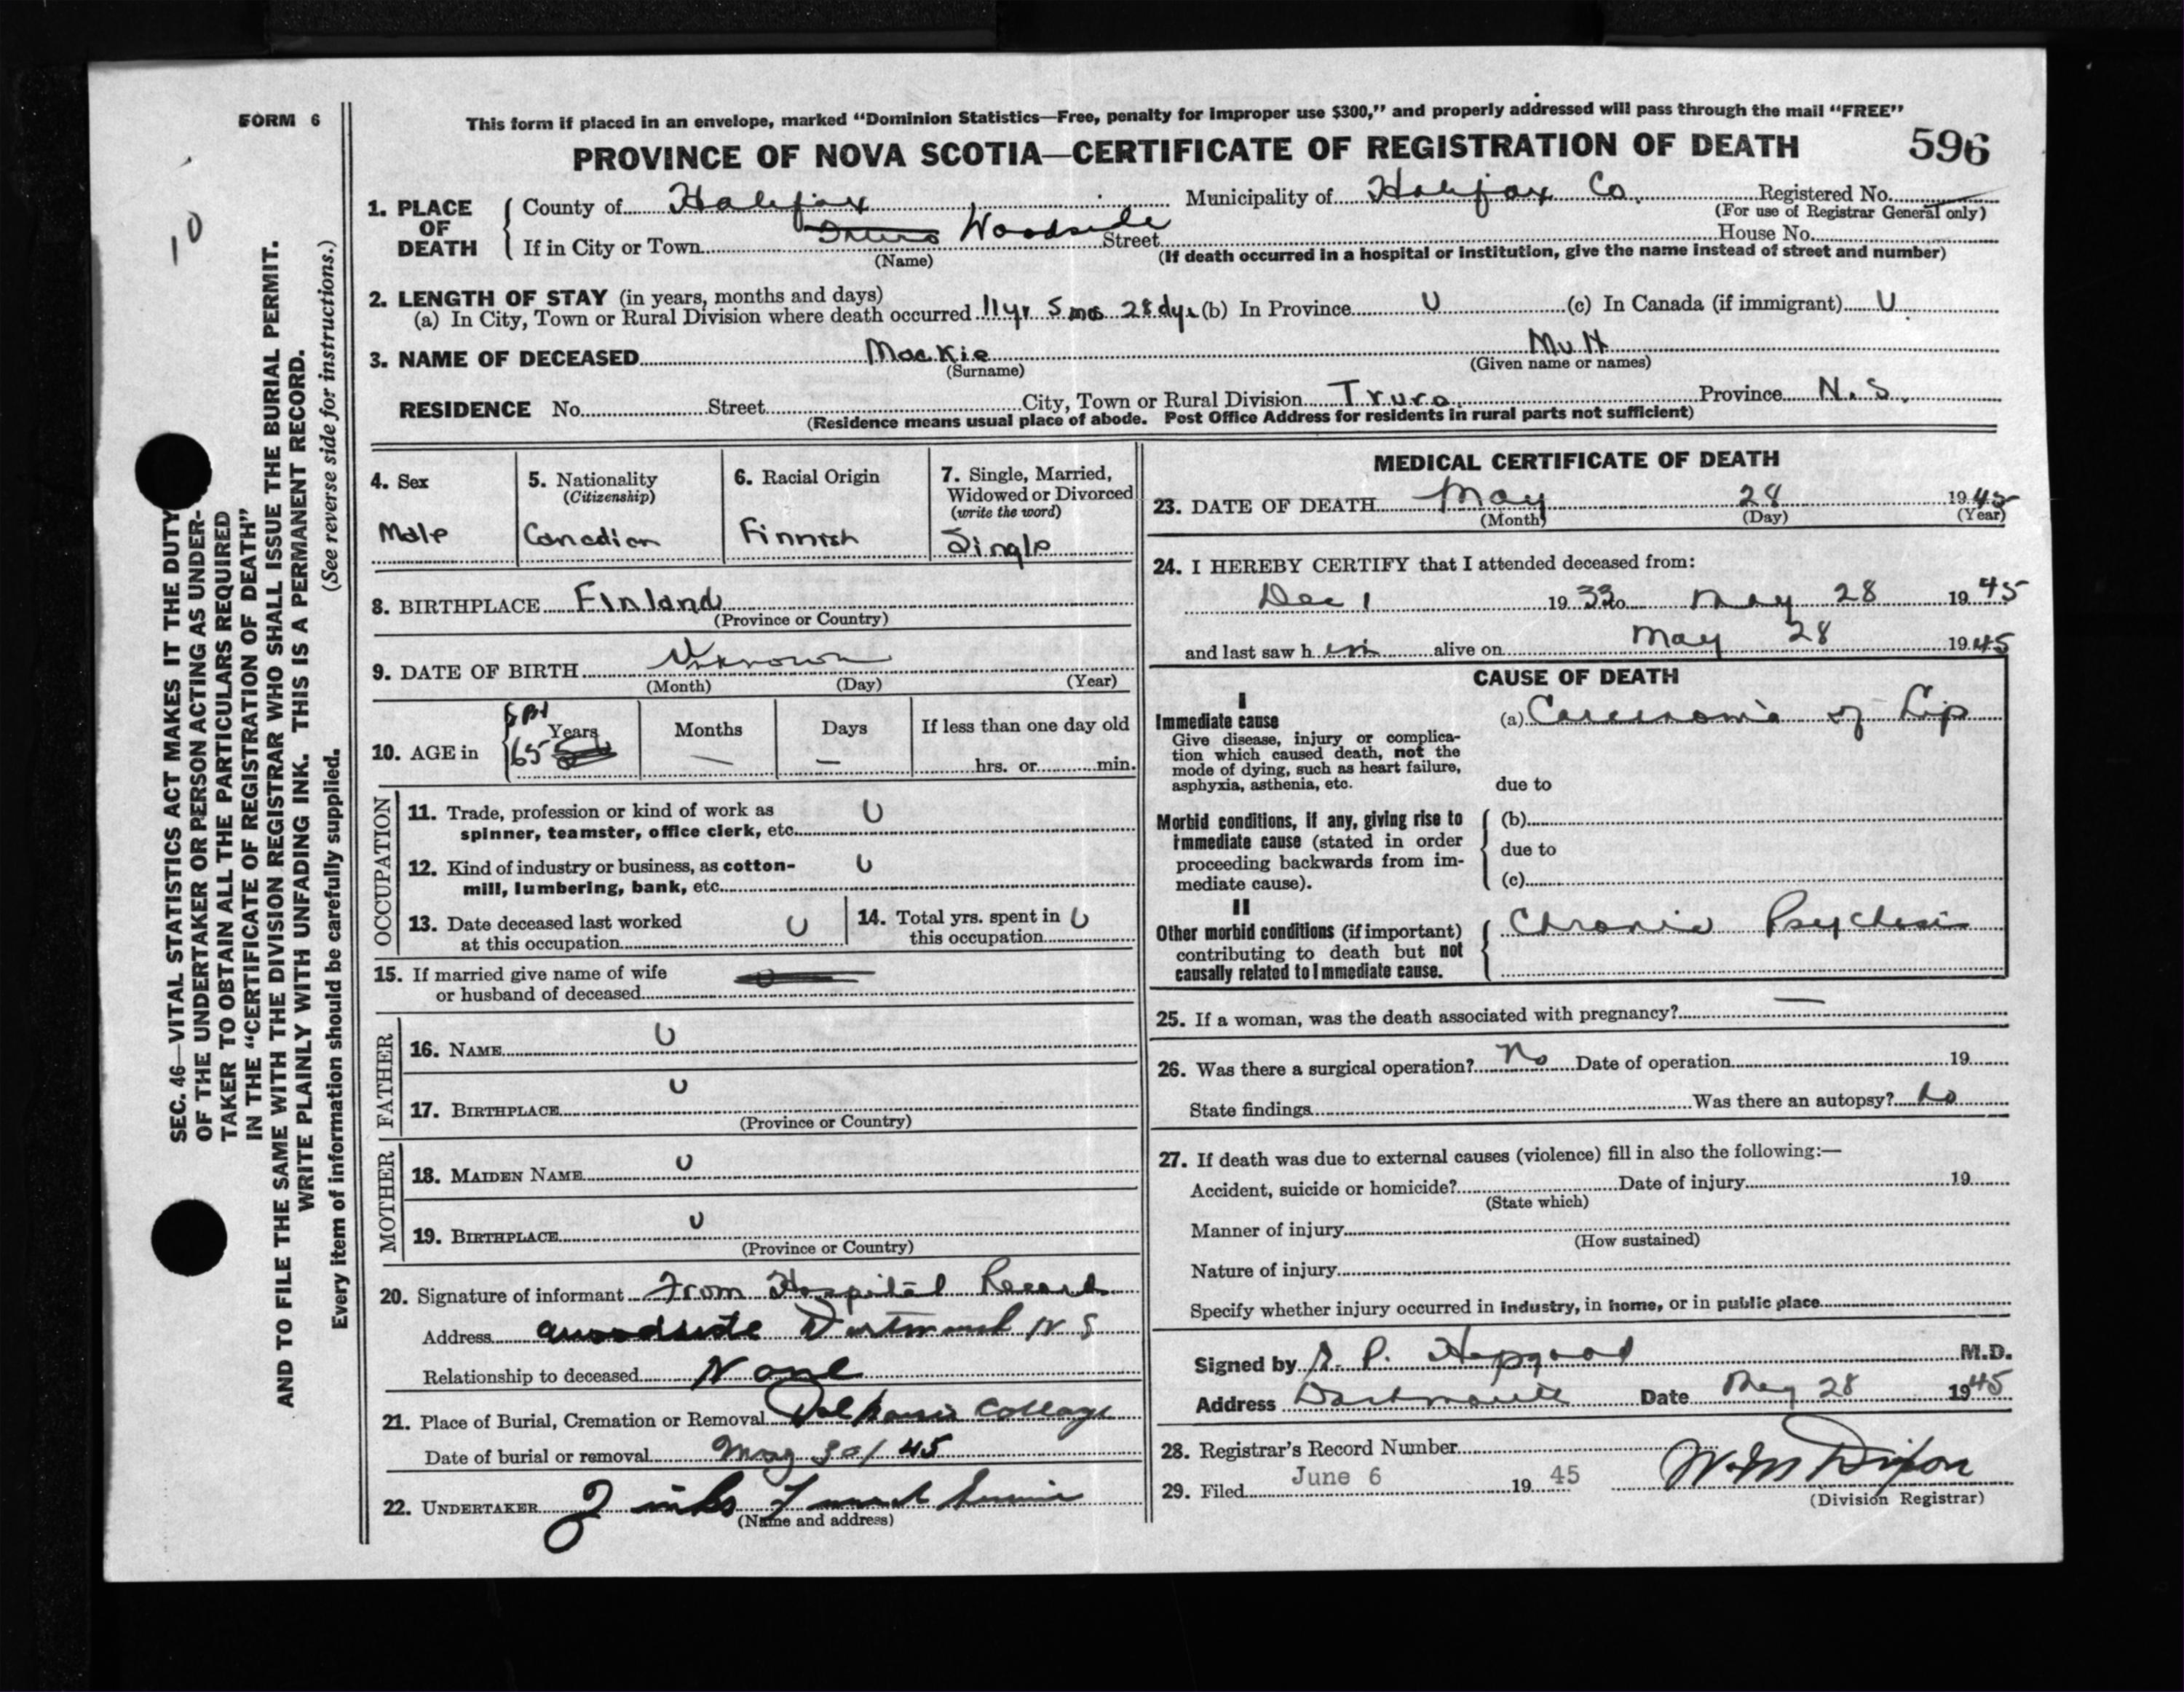 FORM 6
10
This form if placed in an envelope, marked “Dominion Statistics—Free, penalty for improper use $300,” and properly addressed will pass through the mail “FREE”
PROVINCE OF NOVA SCOTIA—CERTIFICATE OF REGISTRATION OF DEATH 596
1. PLACE OF DEATH
County of Halifax Municipality of Halifax Co. Registered No.
(For use of Registrar General only)
If in City or Town Truro Woodside Street House No.
(Name) (If death occurred in a hospital or institution, give the name instead of street and number)
2. LENGTH OF STAY (in years, months and days)
(a) In City, Town or Rural Division where death occurred 11 yr 5 mos 28 dys (b) In Province U (c) In Canada (if immigrant) U
3. NAME OF DECEASED MacKie
(Surname) (Given name or names)
RESIDENCE No. Street City, Town or Rural Division Truro Province N.S.
(Residence means usual place of abode. Post Office Address for residents in rural parts not sufficient)
4. Sex Male
5. Nationality (Citizenship) Canadian
6. Racial Origin Finnish
7. Single, Married, Widowed or Divorced (write the word) Single
8. BIRTHPLACE Finland
(Province or Country)
9. DATE OF BIRTH Unknown
(Month) (Day) (Year)
10. AGE in Years 65 Months — Days — If less than one day old
hrs. or min.
OCCUPATION
11. Trade, profession or kind of work as U
spinner, teamster, office clerk, etc.
12. Kind of industry or business, as cotton- U
mill, lumbering, bank, etc.
13. Date deceased last worked U
at this occupation
14. Total yrs. spent in U
this occupation
15. If married give name of wife
or husband of deceased
FATHER
16. NAME U
17. BIRTHPLACE U
(Province or Country)
MOTHER
18. MAIDEN NAME U
19. BIRTHPLACE U
(Province or Country)
20. Signature of informant From Hospital Record
Address Woodside Dartmouth N S
Relationship to deceased None
21. Place of Burial, Cremation or Removal Dalhousie College
Date of burial or removal May 30/45
22. UNDERTAKER
(Name and address)
MEDICAL CERTIFICATE OF DEATH
23. DATE OF DEATH May 28 1945
(Month) (Day) (Year)
24. I HEREBY CERTIFY that I attended deceased from:
Dec 1 1933 to May 28 1945
and last saw him alive on May 28 1945
CAUSE OF DEATH
I
Immediate cause (a) Carcinoma of Lip
Give disease, injury or complica-
tion which caused death, not the
mode of dying, such as heart failure,
asphyxia, asthenia, etc. due to
Morbid conditions, if any, giving rise to (b)
immediate cause (stated in order due to
proceeding backwards from im-
mediate cause). (c)
II
Other morbid conditions (if important) Chronic Psychosis
contributing to death but not
causally related to immediate cause.
25. If a woman, was the death associated with pregnancy? —
26. Was there a surgical operation? No Date of operation 19
State findings Was there an autopsy? No
27. If death was due to external causes (violence) fill in also the following:—
Accident, suicide or homicide? Date of injury 19
(State which)
Manner of injury
(How sustained)
Nature of injury
Specify whether injury occurred in industry, in home, or in public place
Signed by P. Hopgood M.D.
Address Dartmouth Date May 28 1945
28. Registrar's Record Number
29. Filed June 6 1945 W. M. Dixon
(Division Registrar)
SEC. 46—VITAL STATISTICS ACT MAKES IT THE DUTY
OF THE UNDERTAKER OR PERSON ACTING AS UNDER-
TAKER TO OBTAIN ALL THE PARTICULARS REQUIRED
IN THE “CERTIFICATE OF REGISTRATION OF DEATH”
AND TO FILE THE SAME WITH THE DIVISION REGISTRAR WHO SHALL ISSUE THE BURIAL PERMIT.
WRITE PLAINLY WITH UNFADING INK. THIS IS A PERMANENT RECORD.
Every item of information should be carefully supplied. (See reverse side for instructions.)